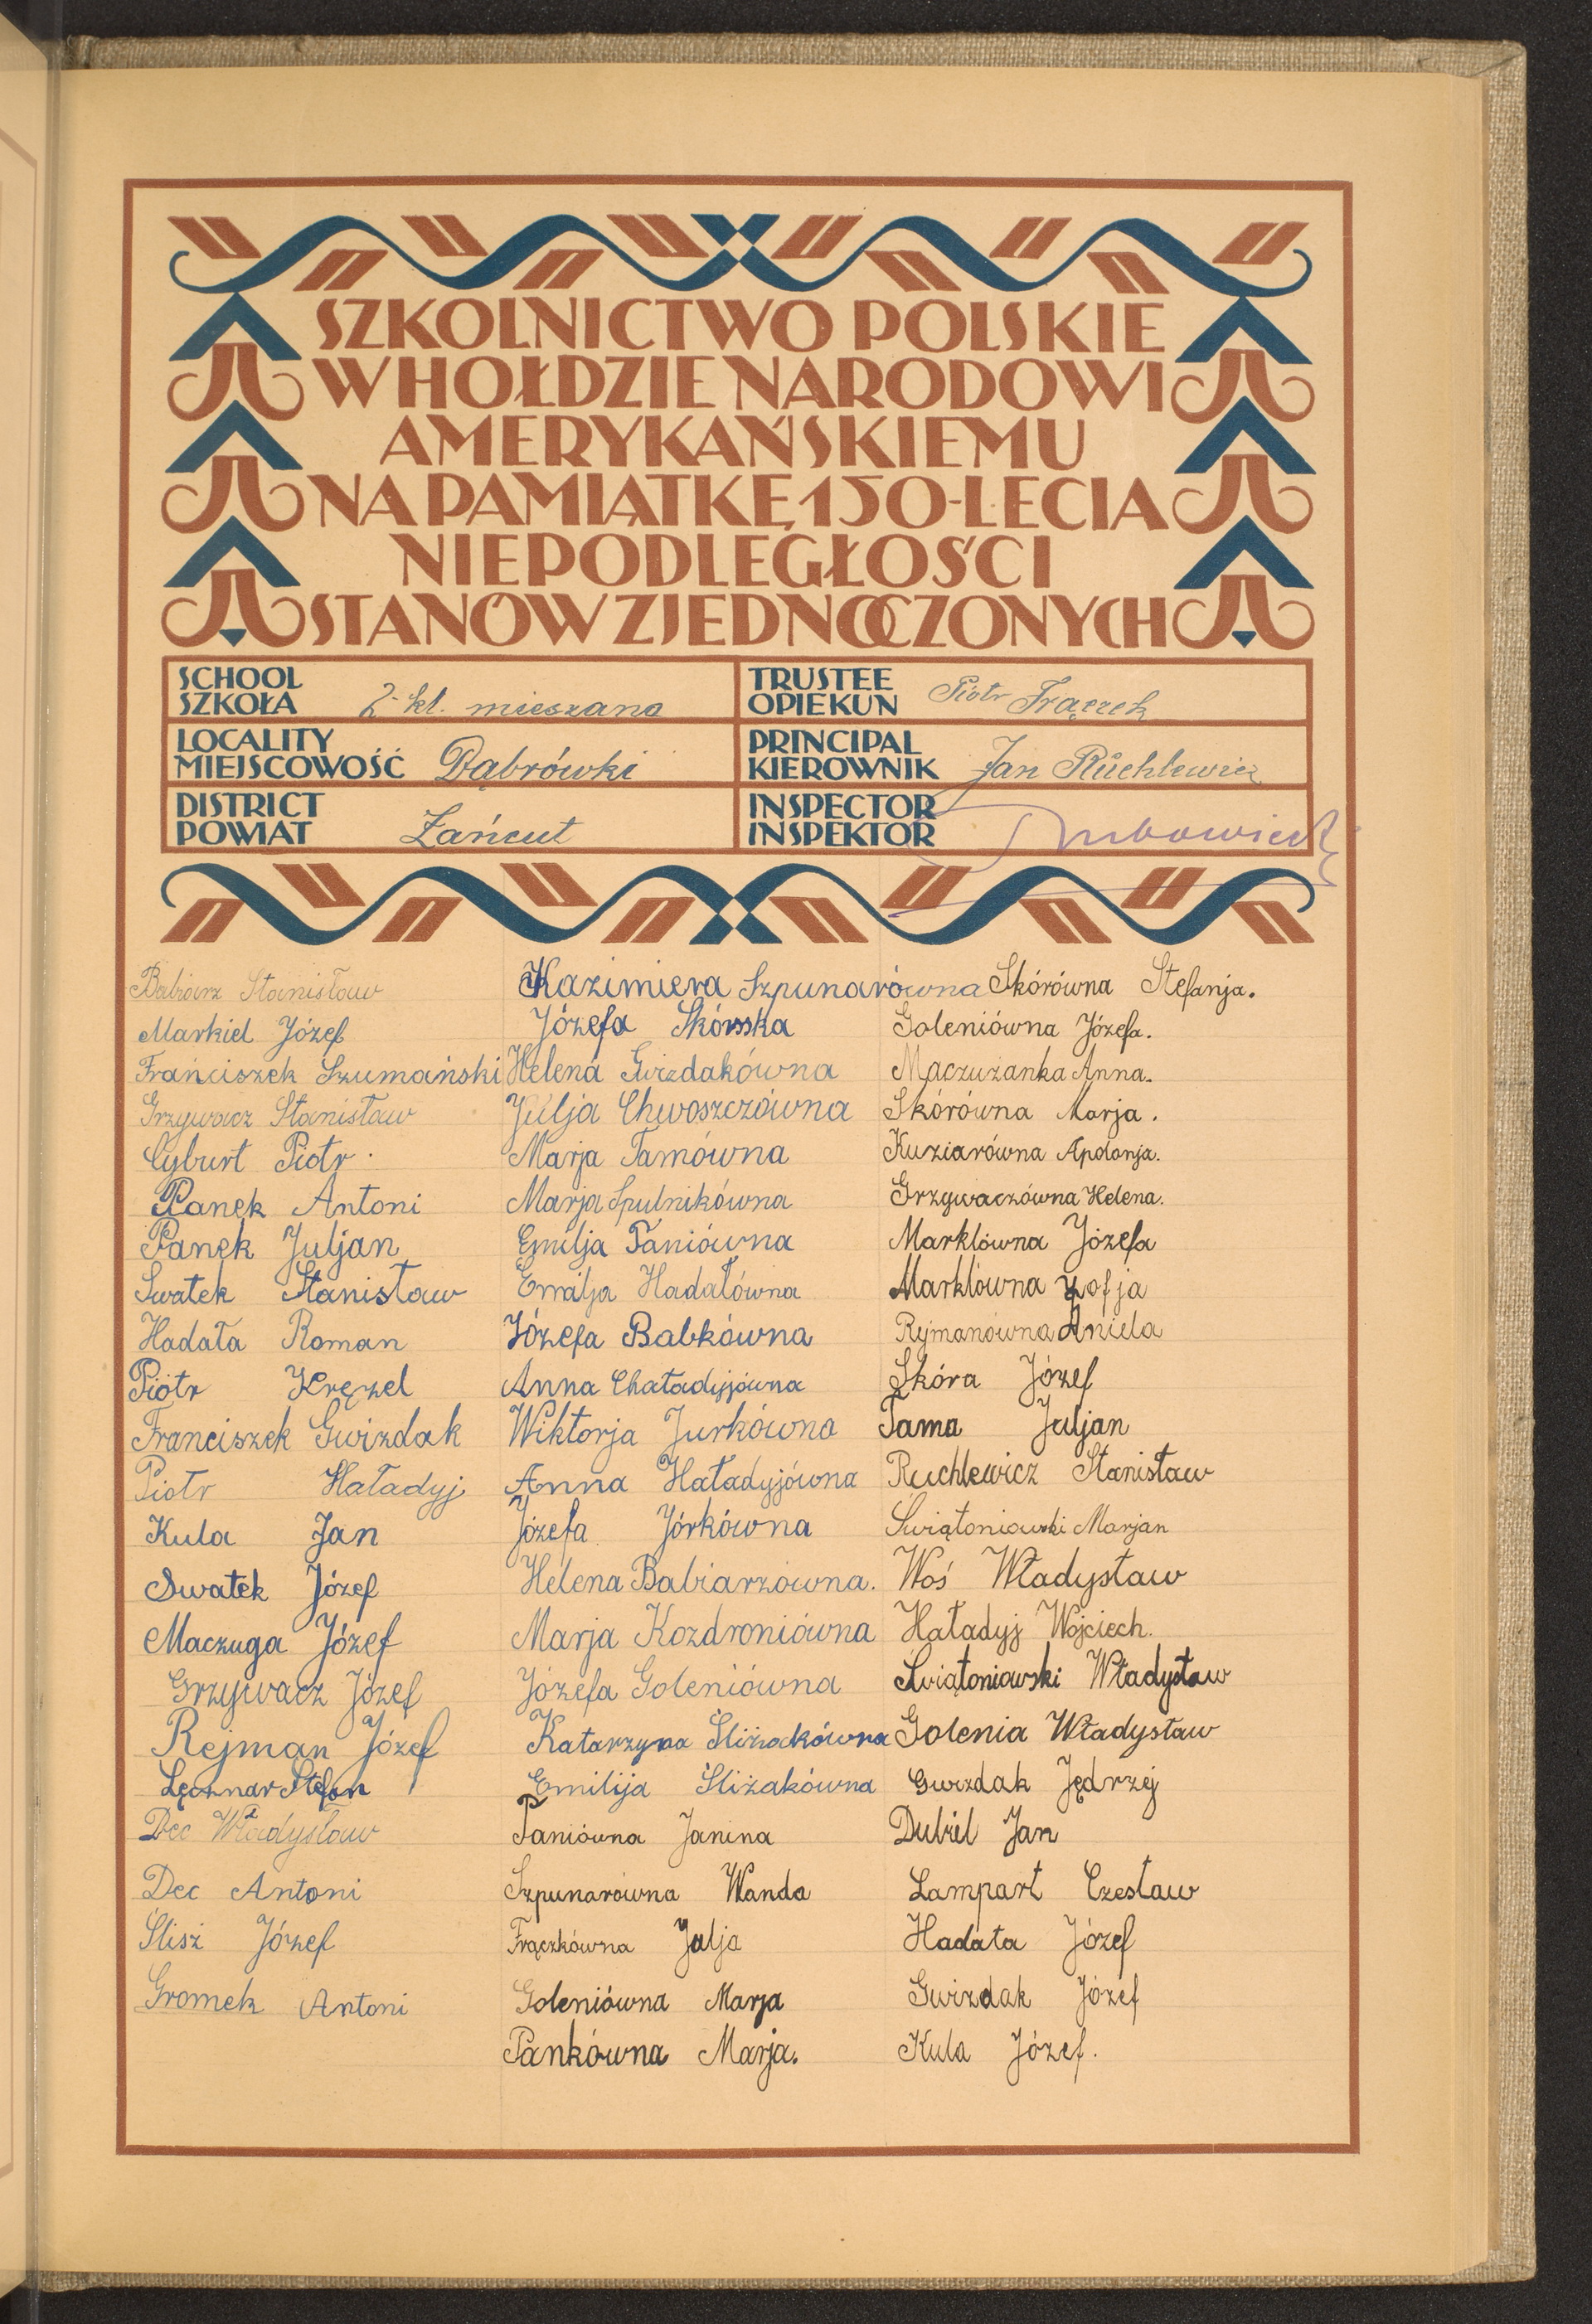 SZKOLNICTWO POLSKIE
W HOŁDZIE NARODOWI
AMERYKAŃSKIEMU
NA PAMIĄTKĘ 150-LECIA
NIEPODLEGŁOŚCI
STANÓW ZJEDNOCZONYCH
SCHOOL
SZKOŁA 2-kl. mieszana
TRUSTEE
OPIEKUN Piotr Frączek
LOCALITY
MIEJSCOWOŚĆ Dąbrówki
PRINCIPAL
KIEROWNIK Jan Ruchlewicz
DISTRICT
POWIAT Łańcut
INSPECTOR
INSPEKTOR
Babiarz Stanisław
Markiel Józef
Franciszek Szumański
Grzywacz Stanisław
Cyburt Piotr
Panek Antoni
Panek Juljan
Swatek Stanisław
Hadała Roman
Piotr Kręzel
Franciszek Gwizdak
Piotr Haładyj
Kula Jan
Swatek Józef
Maczuga Józef
Grzywacz Józef
Rejman Józef
Lęcznar Stefan
Dec Władysław
Dec Antoni
Ślisz Józef
Gromek Antoni
Kazimiera Szpunarówna
Józefa Skórska
Helena Gwizdakówna
Julja Chwoszczówna
Marja Tamówna
Marja Szpulnikówna
Emilja Paniówna
Emilja Hadałówna
Józefa Babkówna
Anna Chaładyjówna
Wiktorja Jurkówna
Anna Haładyjówna
Józefa Jórkówna
Helena Babiarzówna.
Marja Kozdroniówna
Józefa Goleniówna
Katarzyna Śliżakówna
Emilija Śliżakówna
Paniówna Janina
Szpunarówna Wanda
Frączkówna Julja
Goleniówna Marja
Pankówna Marja.
Skórówna Stefanja.
Goleniówna Józefa.
Maczużanka Anna.
Skórówna Marja.
Kuziarówna Apolonja.
Grzywaczówna Helena.
Marklówna Józefa
Marklówna Zofja
Rymanówna Aniela
Skóra Józef
Tama Juljan
Ruchlewicz Stanisław
Świątoniowski Marjan
Woś Władysław
Haładyj Wojciech.
Świątoniowski Władysław
Golenia Władysław
Gwizdak Jędrzej
Dubiel Jan
Lampart Czesław
Hadała Józef
Gwizdak Józef
Kula Józef.